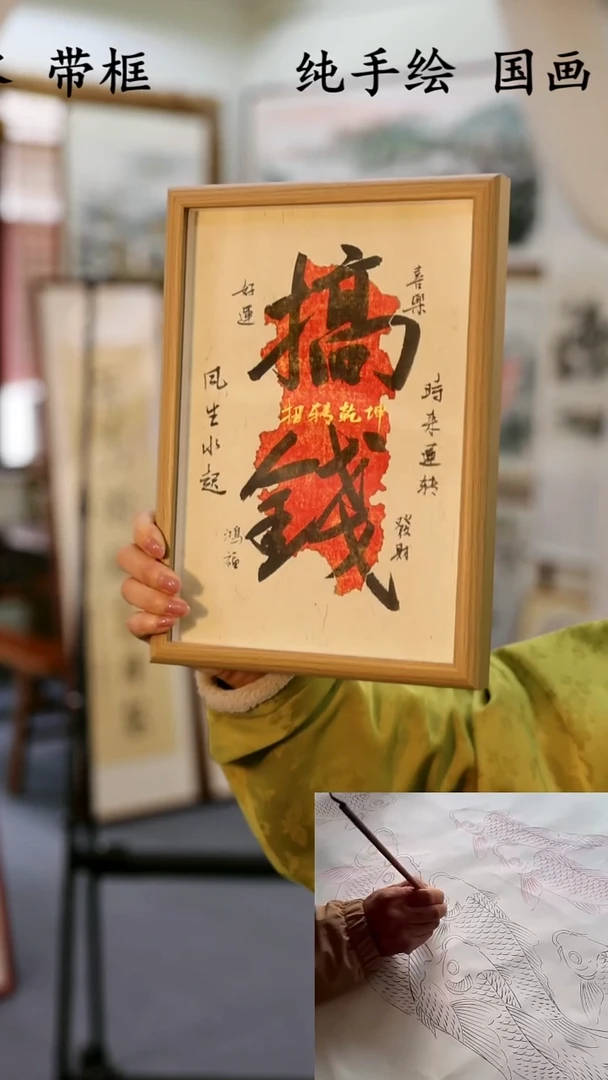 带框 纯手绘 国画
搞
钱
扭转乾坤
好運
喜樂
風生水起
時来運转
鴻福
發財